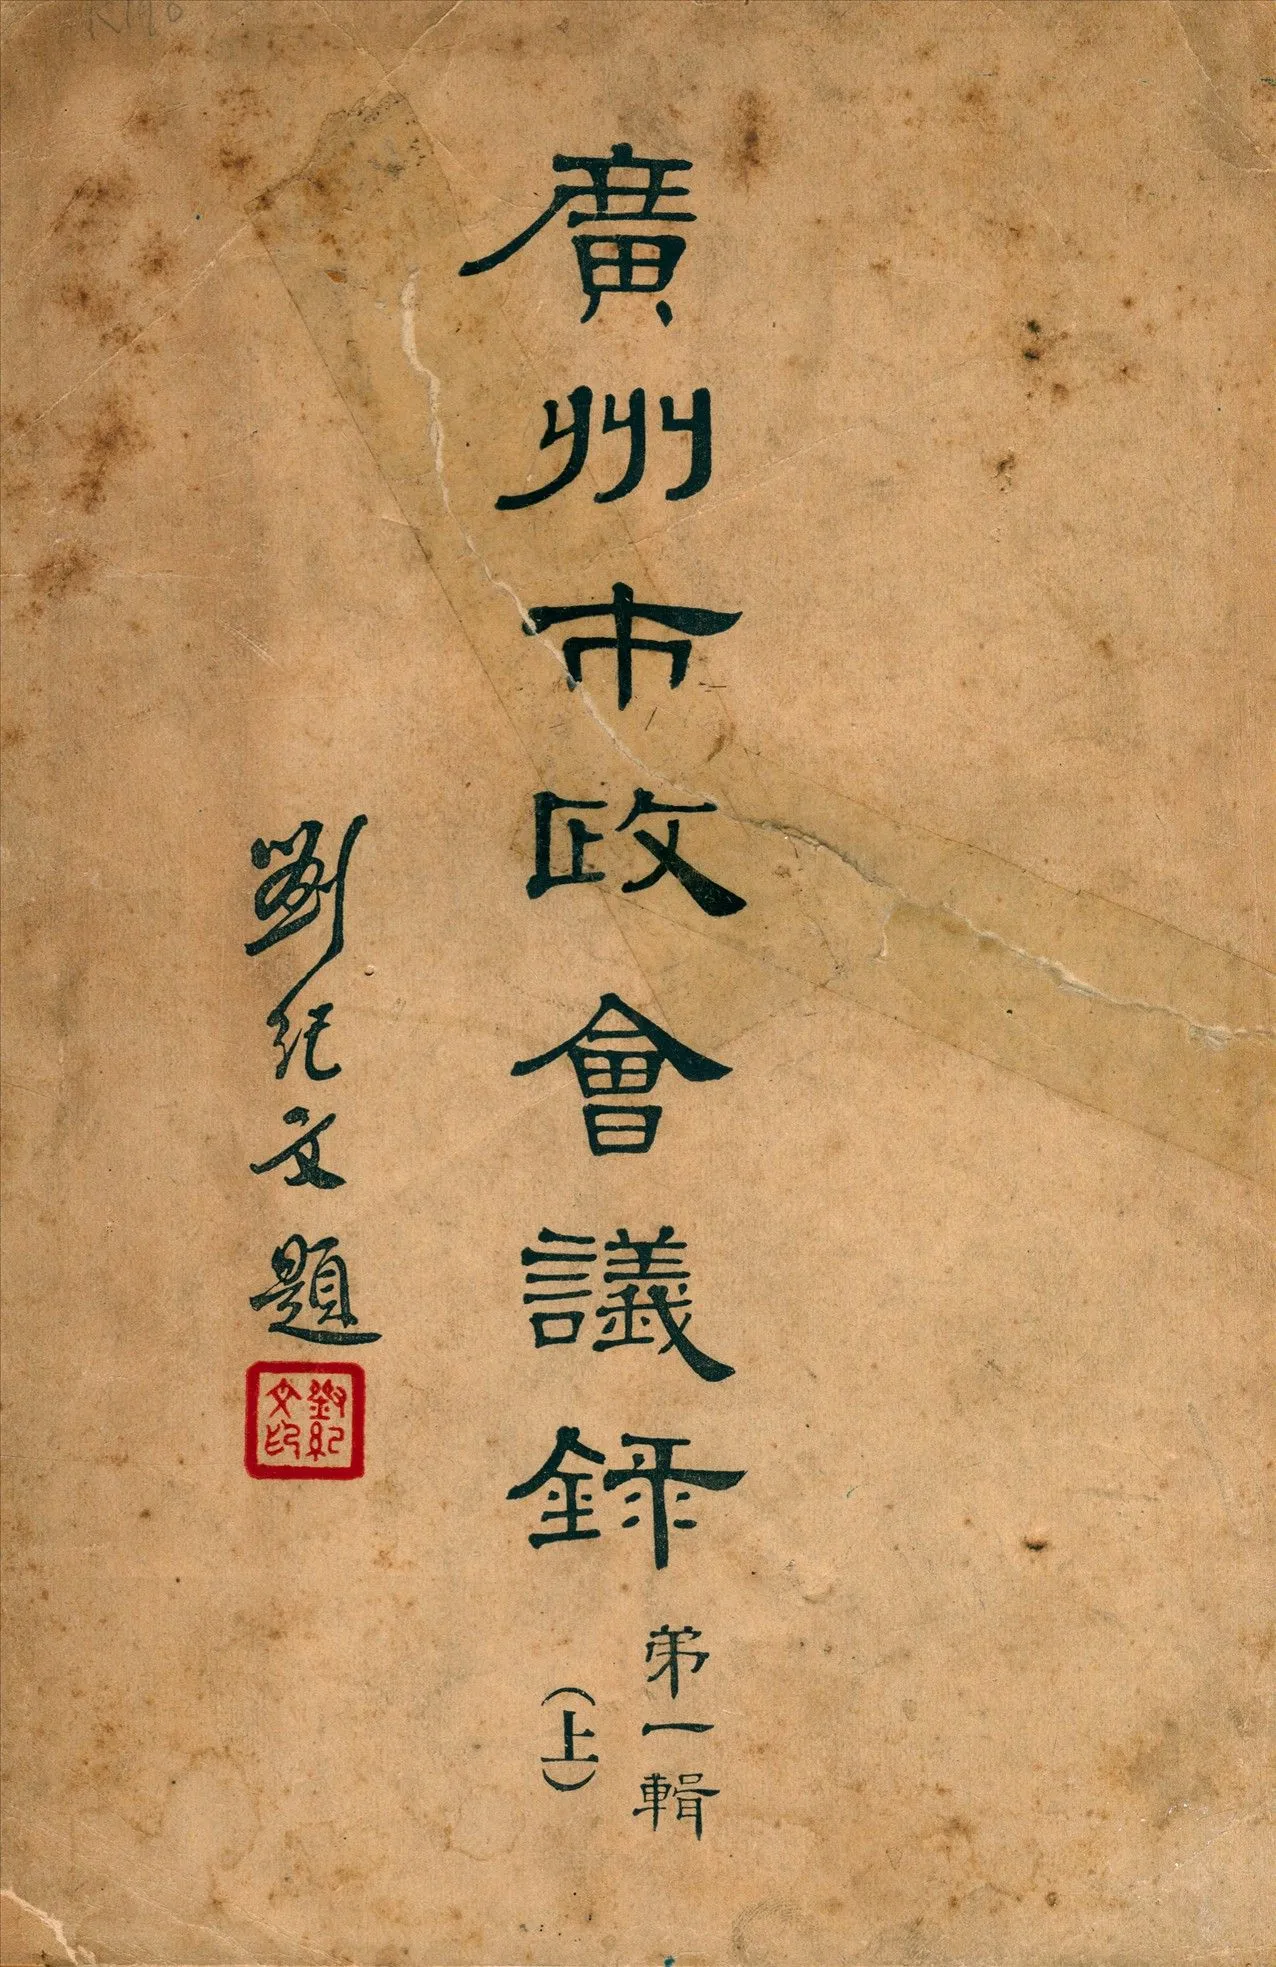 廣州市政會議錄
弟一輯
(上)
劉紀文題
劉紀文印